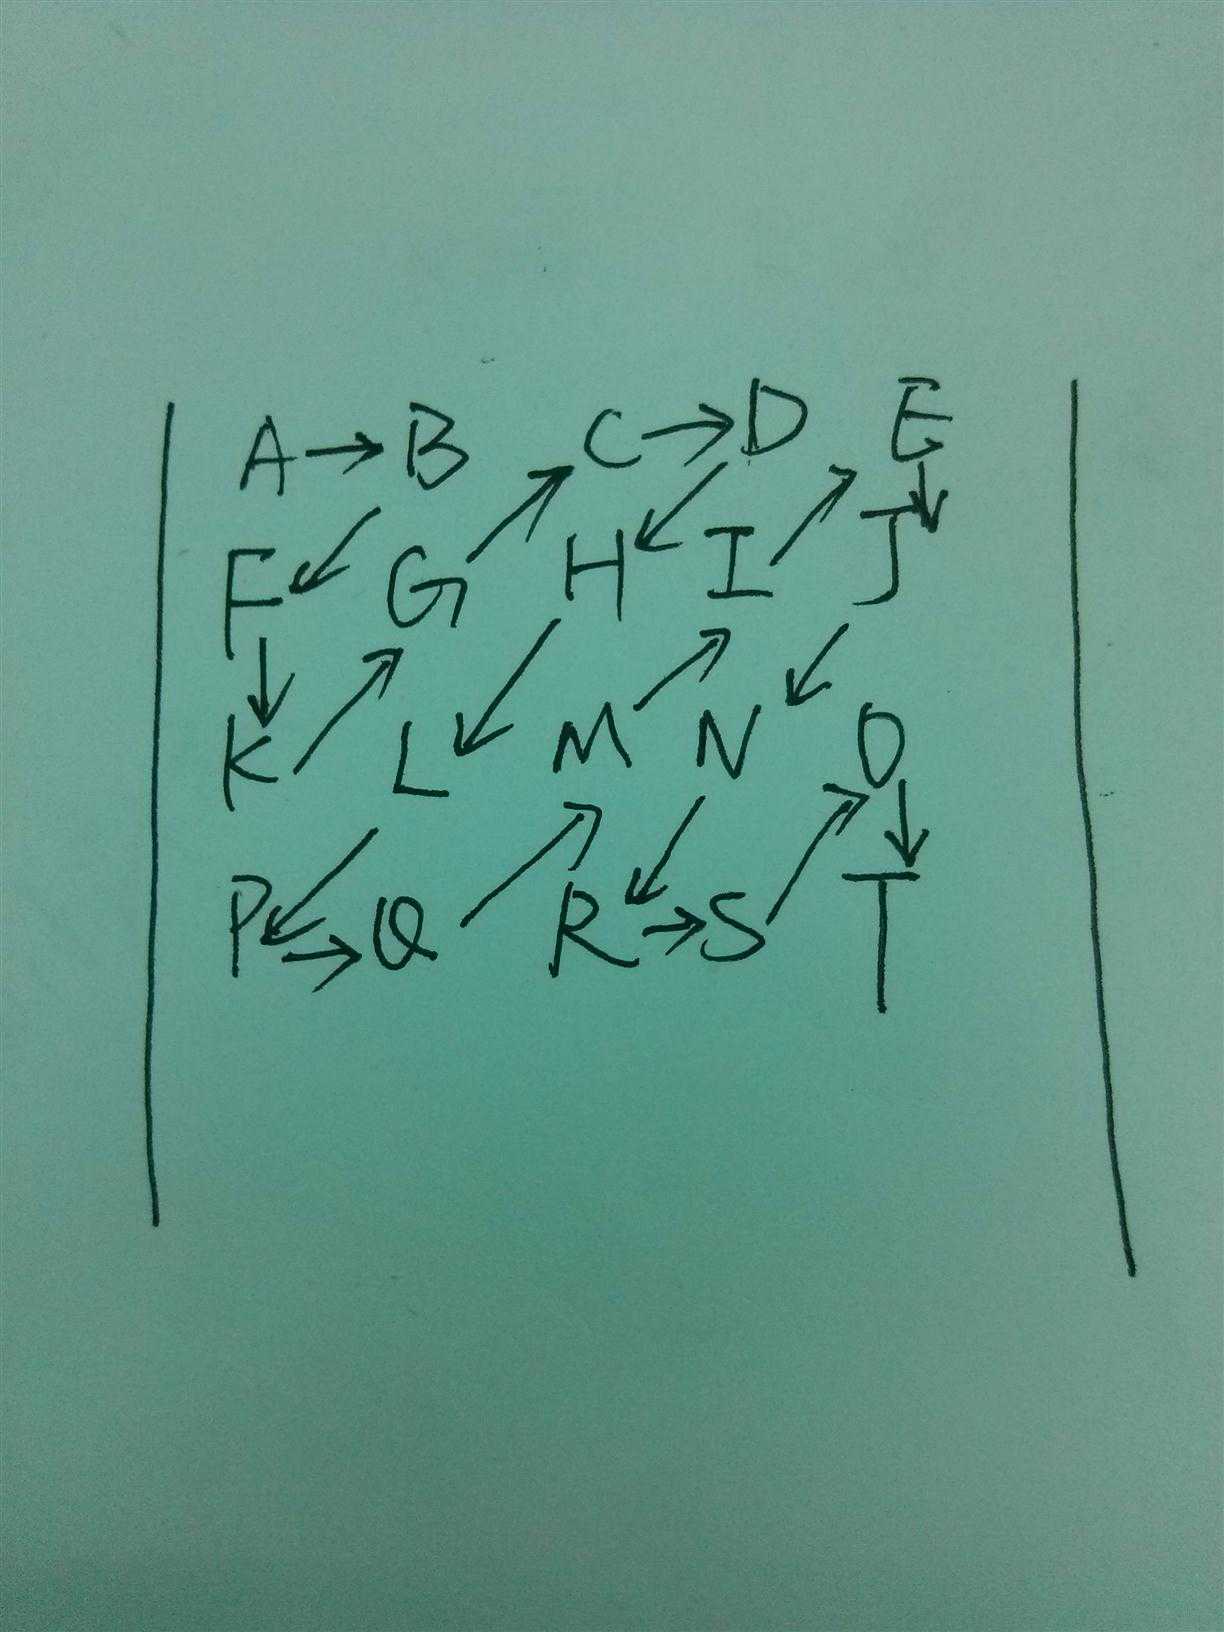 A → B C → D E
F G H I J
K L M N O
P → Q R → S T